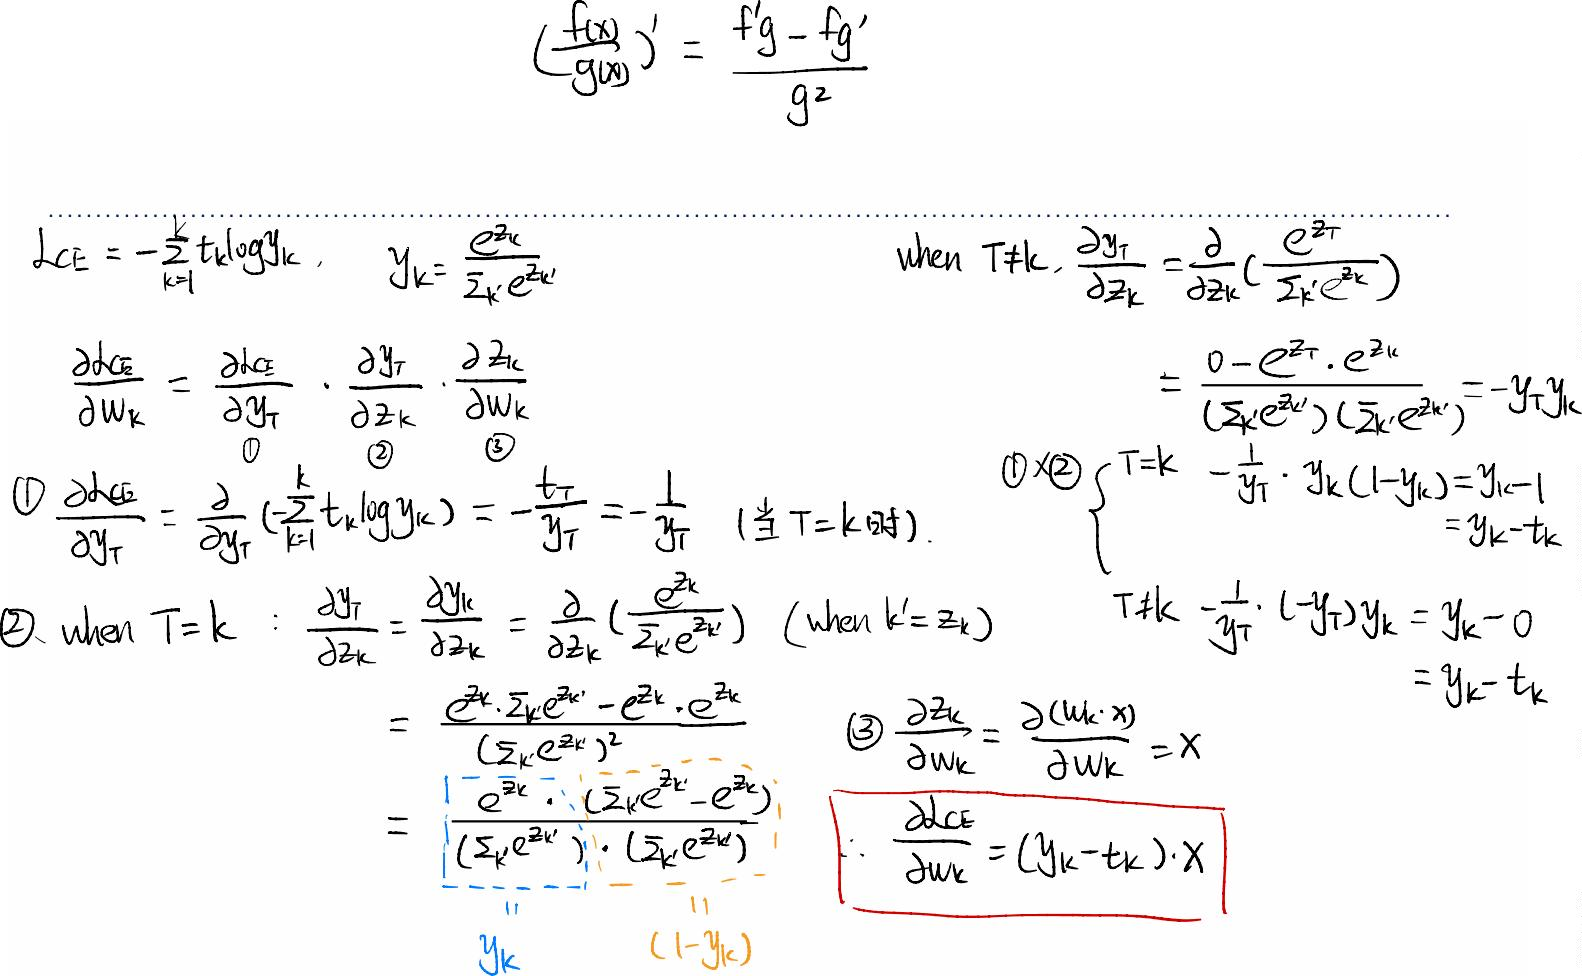 (f(x)/g(x))' = (f'g - fg')/g²
L_CE = -∑_{k=1}^{k} t_k log y_k , y_k = e^{z_k}/∑_{k'} e^{z_{k'}}
∂L_CE/∂w_k = ∂L_CE/∂y_T · ∂y_T/∂z_k · ∂z_k/∂w_k
① ② ③
① ∂L_CE/∂y_T = ∂/∂y_T (-∑_{k=1}^{k} t_k log y_k) = -t_T/y_T = -1/y_T (当 T=k时).
②、when T=k : ∂y_T/∂z_k = ∂y_k/∂z_k = ∂/∂z_k (e^{z_k}/∑_{k'} e^{z_{k'}}) (when k'=z_k)
= (e^{z_k}·∑_{k'} e^{z_{k'}} - e^{z_k}·e^{z_k})/(∑_{k'} e^{z_{k'}})²
= (e^{z_k} · (∑_{k'} e^{z_{k'}} - e^{z_k}))/((∑_{k'} e^{z_{k'}}) · (∑_{k'} e^{z_{k'}}))
= =
y_k (1-y_k)
when T≠k, ∂y_T/∂z_k = ∂/∂z_k (e^{z_T}/∑_{k'} e^{z_k})
= (0 - e^{z_T}·e^{z_k})/((∑_{k'} e^{z_{k'}})(∑_{k'} e^{z_{k'}})) = -y_T y_k
①×② { T=k -1/y_T · y_k(1-y_k) = y_k-1
= y_k-t_k
T≠k -1/y_T · (-y_T)y_k = y_k-0
= y_k-t_k
③ ∂z_k/∂w_k = ∂(w_k·x)/∂w_k = x
∴ ∂L_CE/∂w_k = (y_k-t_k)·x